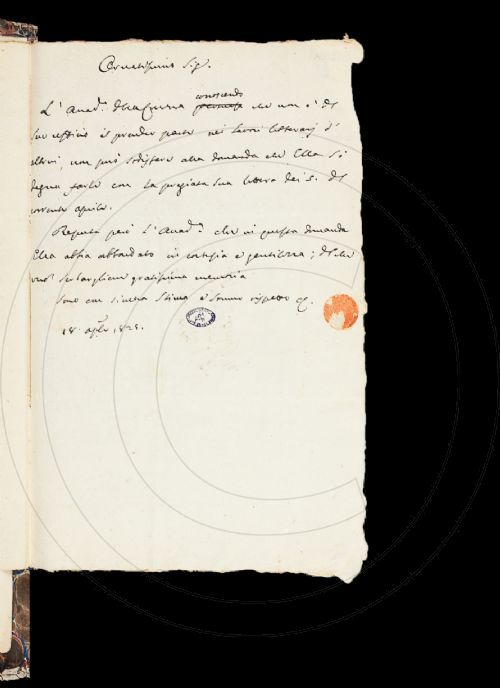 Ornatissimo Sig.
conoscendo
L'Accad.ª della Crusca che non è del
suo ufficio il prender parte nei lavori letterarj d'
altrui, non può sodisfare alla domanda che Ella si
degna farle con la pregiata sua lettera dei 5. del
corrente aprile.
Reputa però l'Accad.ª che in questa domanda
Ella abbia abbondato in cortesia e gentilezza; del che
vuol serbargliene gratissima memoria
Sono con sincera stima e sommo rispetto
18.